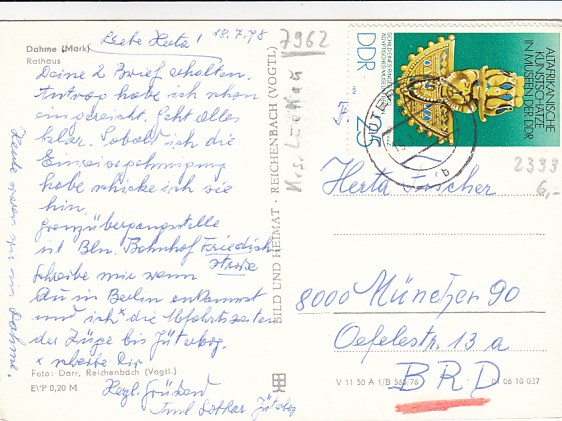 Dahme (Mark)
Rathaus
Liebe Herta! 12.7.78
7962
Deine 2 Brief erhalten.
Antrag habe ich schon
eingereicht. Geht alles
klar. Sobald ich die
Einreisegenehmigung
habe schicke ich sie
hin.
Grenzübergangsstelle
ist Bln. Bahnhof Friedrich
strasse
Schreibe mir wann
Du in Berlin ankommst
und ich* die Abfahrtszeiten
der Züge bis Jüterbog.
* schreibe Dir
Herzl. Grüße
Lothar Jüterbog
Heute waren wir in Dahme.
Foto: Darr, Reichenbach (Vogtl.)
EVP 0,20 M
BILD UND HEIMAT · REICHENBACH (VOGTL)
Krs. Luckau
DDR
25
ALTAFRIKANISCHE
KUNSTSCHÄTZE
IN MUSEEN DER DDR
ÄGYPTISCHES MUSEUM
1978
2333
6,-
Herta Fischer
8000 München 90
Oefelestr. 13 a
BRD
V 11 50 A 1/B 565/76 01 06 10 037